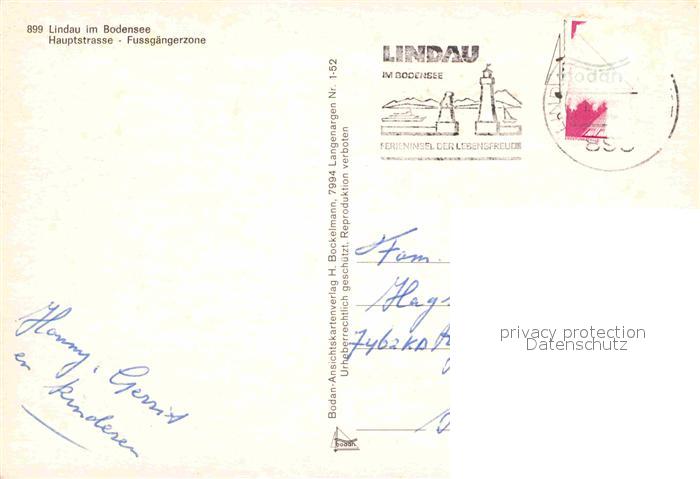 899 Lindau im Bodensee
Hauptstrasse - Fussgängerzone
LINDAU
IM BODENSEE
FERIENINSEL DER LEBENSFREUDE
bodan
Bodan-Ansichtskartenverlag H. Bockelmann, 7994 Langenargen Nr. 1-52
Urheberrechtlich geschützt. Reproduktion verboten
Fam.
Hag
7462KA
privacy protection
Datenschutz
Hanny, Gerrit
en kinderen
bodan